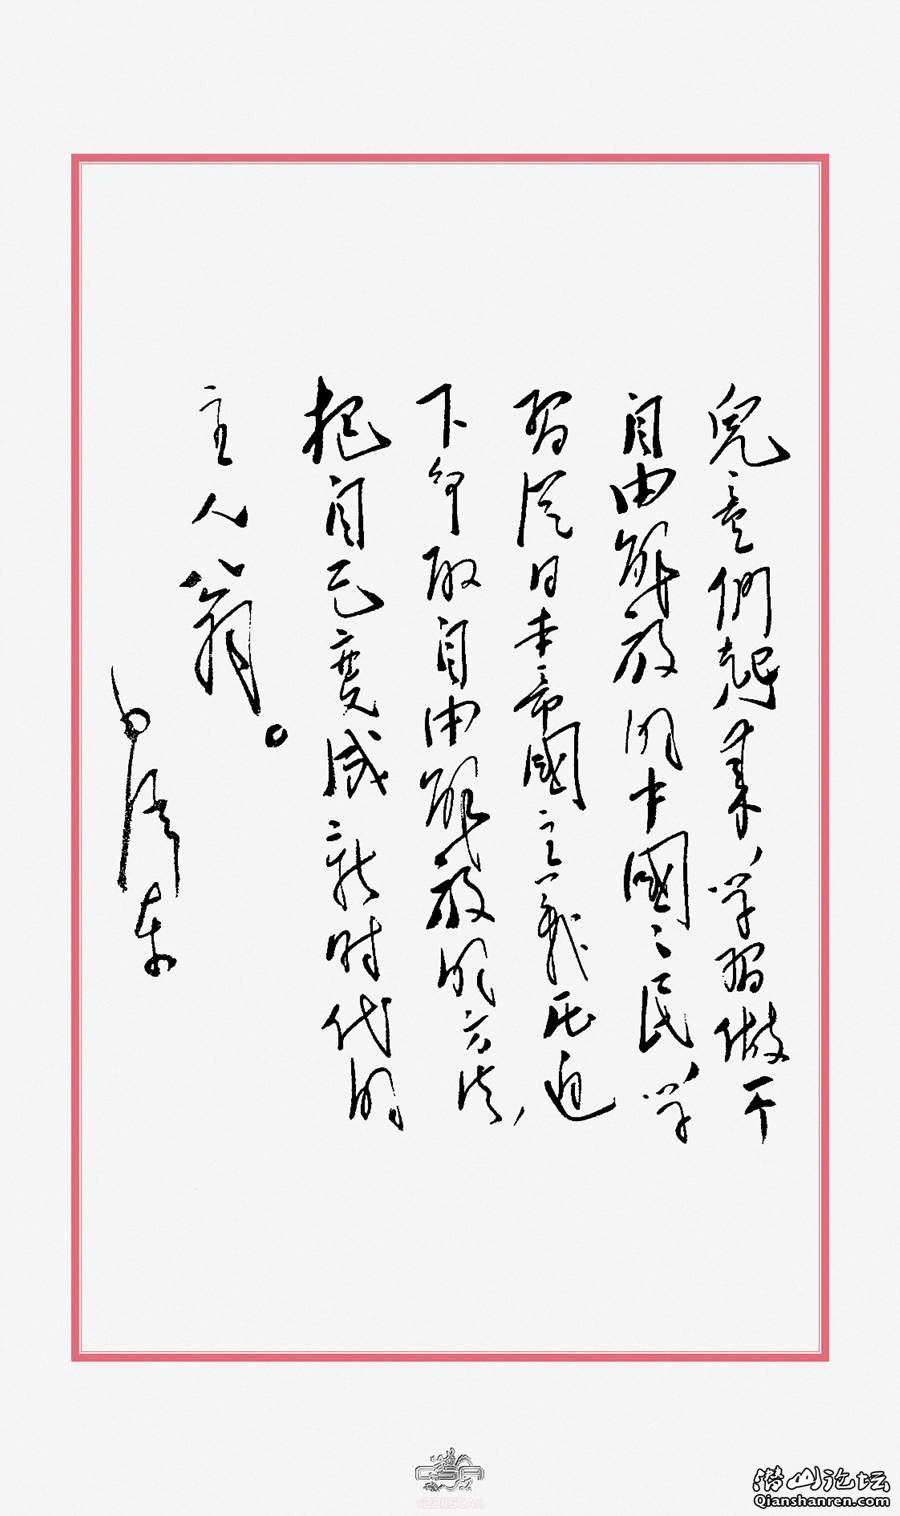 兒童們起来，学習做一个
自由解放的中國々民，学
習從日本帝國主義压迫
下争取自由解放的方法，
把自己變成新时代的
主人翁。
毛泽东
潜山论坛
Qianshanren.com